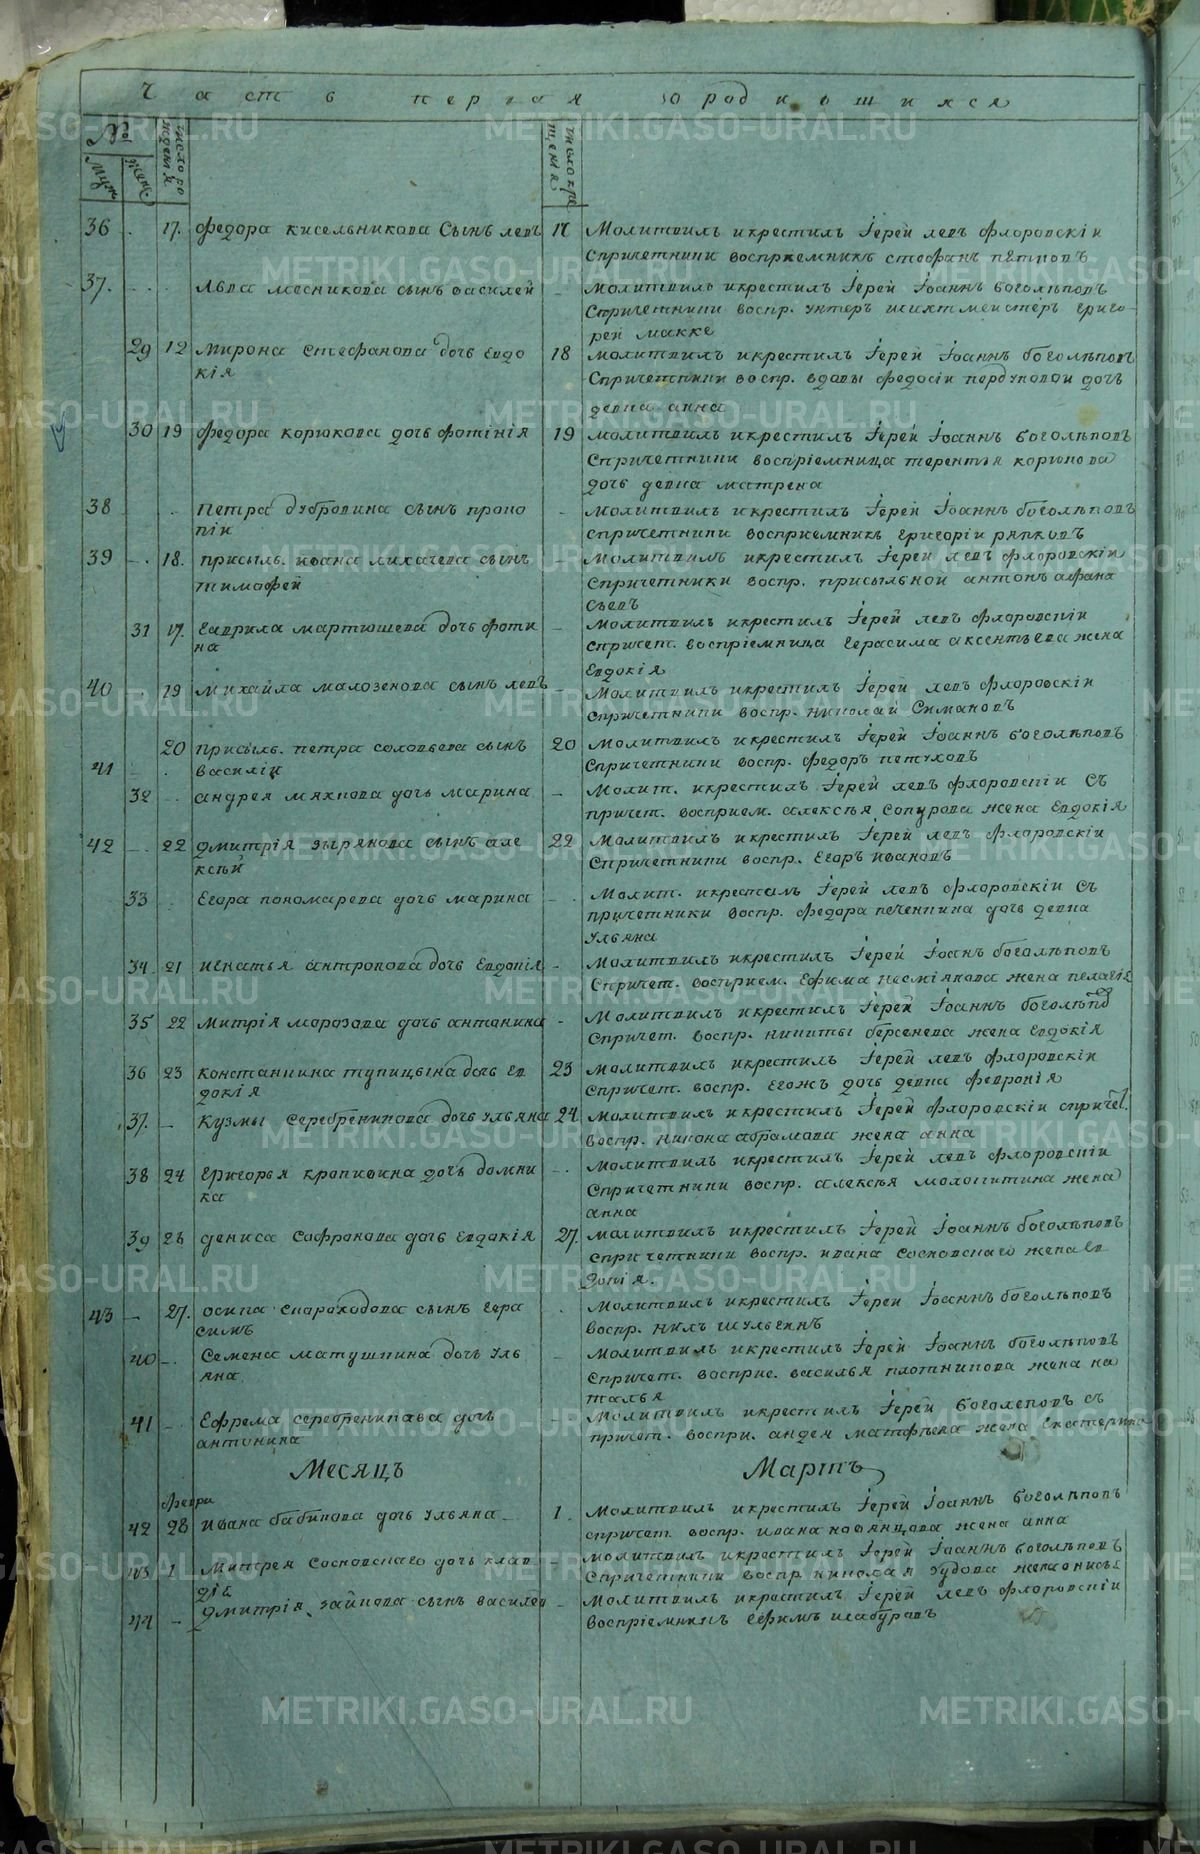 Часть первая о родившихся
№
муж.
жен.
число рождения
число крещения
36 17. Федора кисельникова Сынъ левъ 17 Молитвилъ икрестилъ Іерей левъ флоровскій
Спричетники восприемникъ стефанъ
37. Льва месникова сынъ василей Молитвилъ икрестилъ Іерей Іоаннъ боголѣповъ
Спричетники воспр. унтеръ шихтмейстеръ григо-
рей макке
29 12 Мирона стефанова дочь Евдо 18 молитвилъ икрестилъ Іерей Іоаннъ боголѣповъ
кія Спричетники воспр. вдовы федосіи пердуновои дочь
девка анна
30 19 федора корюкова дочь фотінія 19 молитвилъ икрестилъ Іерей Іоаннъ боголѣповъ
Спричетники воспріемница терентья корюкова
дочь девка матрена
38 Петра дубровина сынъ проко - молитвилъ икрестилъ Іерей Іоаннъ боголѣповъ
піи спричетники восприемникъ григорій
39 18. присыль. ивана лихачева сынъ Молитвилъ икрестилъ Іерей левъ флоровскіи
тимофей Спричетники воспр. присыльной антонъ афана
сьевъ
31 17. гаврила мартюшева дочь фоти - Молитвилъ икрестилъ Іерей левъ флоровскіи
на спричет. воспріемница герасима аксентьева жена
Евдокія
40 19 михайла малоземова сынъ левъ - Молитвилъ икрестилъ Іерей левъ флоровскіи
спричетники воспр. николай Симановъ
20 присыль. петра соловьева сынъ 20 Молитвилъ икрестилъ Іерей Іоаннъ боголѣповъ
41 василіи Спричетники воспр. федоръ петуховъ
32 андрея мяхкова дочь марина - Молит. икрестилъ Іерей левъ флоровскіи Съ
причет. восприем. алексѣя жена Евдокія
42 22 дмитрія зырянова сынъ але 22 Молитвилъ икрестилъ Іерей левъ флоровскіи
ксѣй Спричетники воспр. Егоръ ивановъ
33 Егора пономарева дочь марина - Молит. икрестилъ Іерей левъ флоровскіи Съ
причетники воспр. федора печенкина дочь девка
ульяна
34 21 игнатья антропова дочь Евдокія - Молитвилъ икрестилъ Іерей Іоанъ боголѣповъ
Спричет. восприем. Ефима жена пелагія
35 22 Митрія морозова дочь антонина - Молитвилъ икрестилъ Іерей Іоаннъ боголѣпов
Спричет. воспр. никиты берсенева жена Евдокія
36 23 константина тупицына дочь Ев 23 молитвилъ икрестилъ Іерей левъ флоровскіи
докія Спричет. воспр. Егожъ дочь девка февронія
37. - Кузмы серебреникова дочь ульяна 24. Молитвилъ икрестилъ Іерей флоровскіи спричет.
воспр. никона абрамова жена анна
38 24 григорья крапивина дочь домни - Молитвилъ икрестилъ Іерей левъ флоровскіи
ка Спричетники воспр. алексѣя жена
анна
39 26 дениса Сафронова дочь Евдокія 27. молитвилъ икрестилъ Іерей Іоаннъ боголѣповъ
спричетники воспр. ивана сосновскаго жена Ев
докія.
43 - 27. осипа скороходова сынъ гера Молитвилъ икрестилъ Іерей Іоаннъ боголѣповъ
симъ воспр. нилъ шульгинъ
40 - Семена матушкина дочь уль - Молитвилъ икрестилъ Іерей Іоаннъ боголѣповъ
яна Спричет. восприе. василья плотникова жена на
талья
41 - Ефрема серебреникава дочь - Молитвилъ икрестилъ Іерей боголеповъ съ
антонина причет. воспри. андея матфѣева жена Екатерина
Месяцъ Мартъ
Февра
42 28 Ивана бабикова дочь ульяна 1. Молитвилъ икрестилъ Іерей Іоаннъ боголѣповъ
спричет. воспр. ивана жена анна
43 1 Митрея Сосновскаго дочь клав - молитвилъ икрестилъ Іерей Іоаннъ боголѣповъ
діа Спричетники воспр николая жена
44 - Дмитрія зайкова сынъ василей - Молитвилъ икрестилъ Іерей левъ флоровскіи
воспріемникъ Ефимъ шабуровъ
METRIKI.GASO-URAL.RU